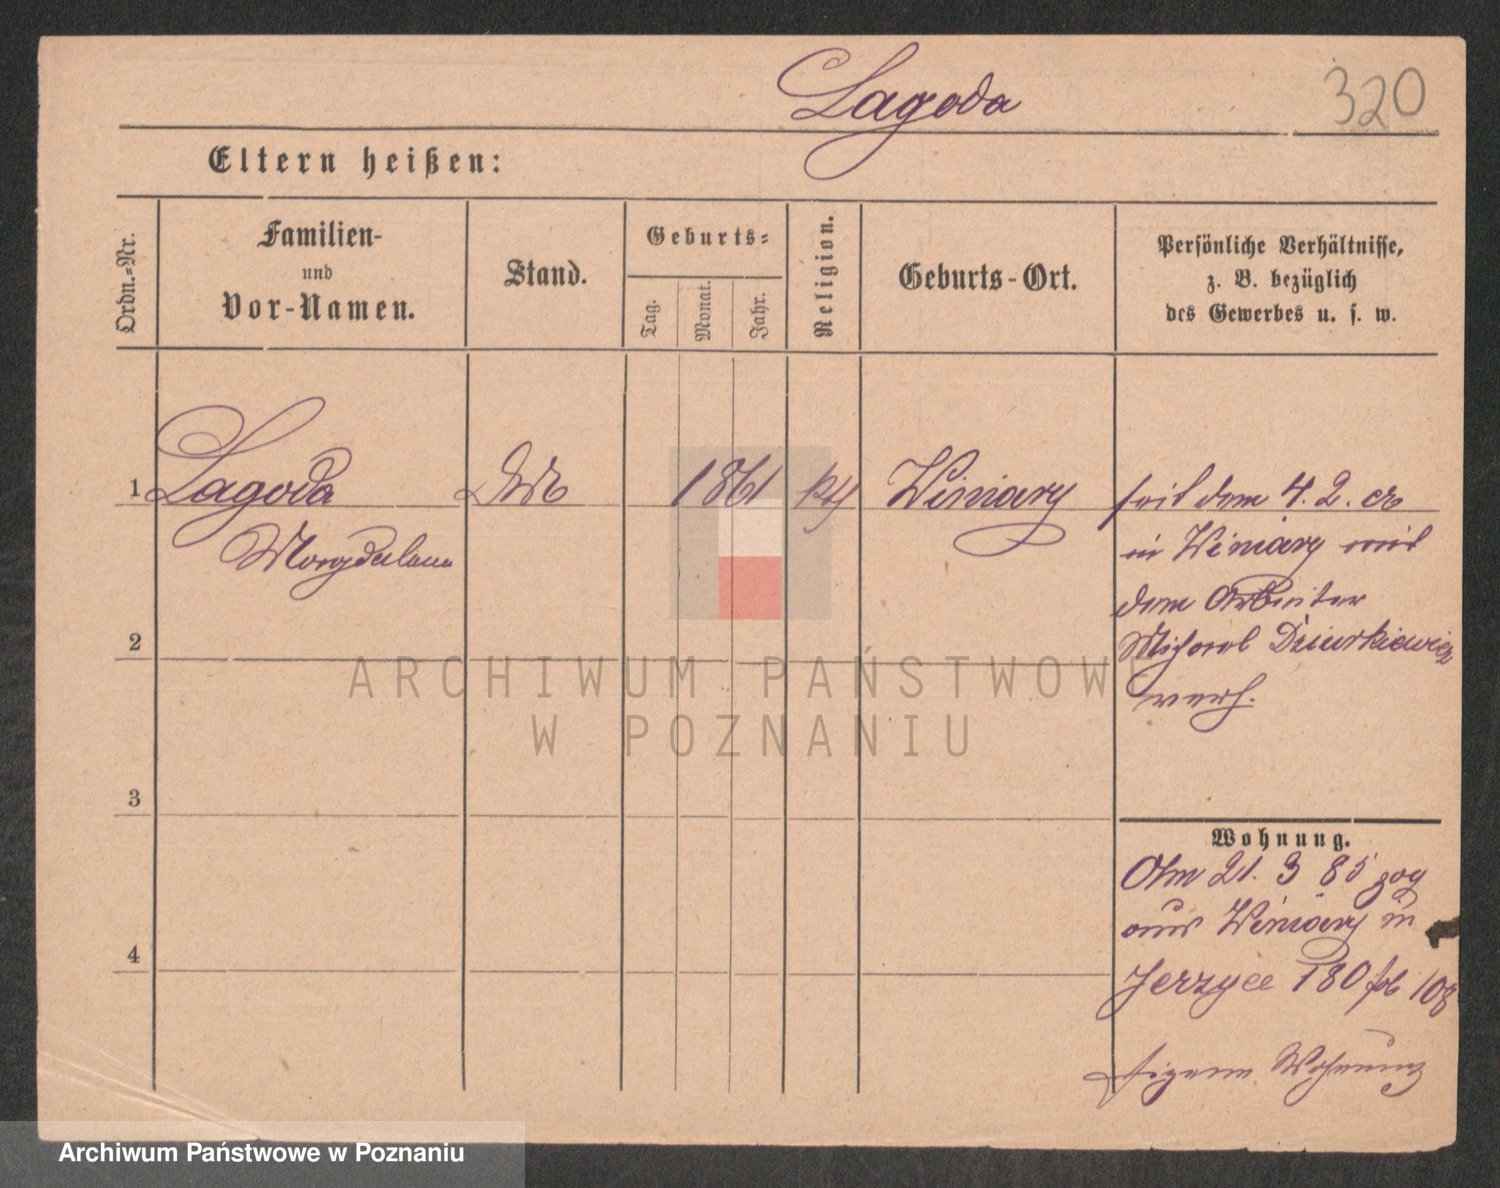 Lagoda
320
Eltern heißen:
Ordn.-Nr.
Familien-
und
Vor-Namen.
Stand.
Geburts-
Tag.
Monat.
Jahr.
Religion.
Geburts-Ort.
Persönliche Verhältnisse,
z. B. bezüglich
des Gewerbes u. s. w.
1 Lagoda 1861 kth Winiary seit dem 4. 2. cr
Magdalena
in Winiary mit
dem Arbeiter
2
Michael Dziurkiewicz
verh.
3
Wohnung.
Am 21. 3 85 zog
aus Winiary in
4
Jerzyce 180 fol 108
eigene Wohnung
ARCHIWUM PAŃSTWOWE
W POZNANIU
Archiwum Państwowe w Poznaniu